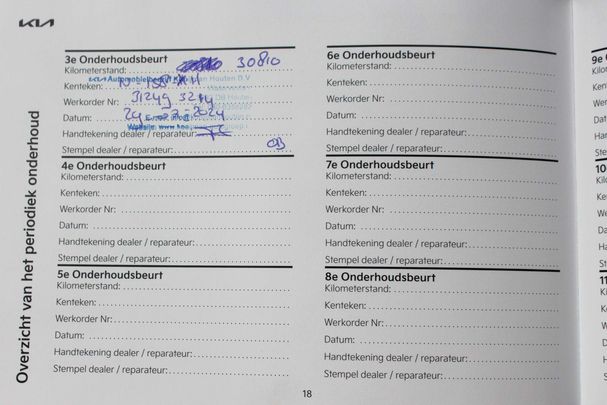 KIA
Overzicht van het periodiek onderhoud
3e Onderhoudsbeurt
Kilometerstand: 30810
KIA Automobielbedrijf Houten B.V
Kenteken:
Werkorder Nr:
Datum: 2024
Handtekening dealer / reparateur:
Website: www.
Stempel dealer / reparateur:
4e Onderhoudsbeurt
Kilometerstand:
Kenteken:
Werkorder Nr:
Datum:
Handtekening dealer / reparateur:
Stempel dealer / reparateur:
5e Onderhoudsbeurt
Kilometerstand:
Kenteken:
Werkorder Nr:
Datum:
Handtekening dealer / reparateur:
Stempel dealer / reparateur:
6e Onderhoudsbeurt
Kilometerstand:
Kenteken:
Werkorder Nr:
Datum:
Handtekening dealer / reparateur:
Stempel dealer / reparateur:
7e Onderhoudsbeurt
Kilometerstand:
Kenteken:
Werkorder Nr:
Datum:
Handtekening dealer / reparateur:
Stempel dealer / reparateur:
8e Onderhoudsbeurt
Kilometerstand:
Kenteken:
Werkorder Nr:
Datum:
Handtekening dealer / reparateur:
Stempel dealer / reparateur:
18
9e
Kilo
Ken
We
Dat
Han
Ste
10
Kil
Ke
W
Da
H
S
11
K
K